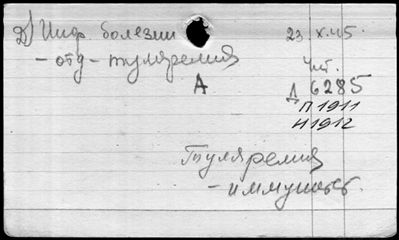 2) Инф. болезни 23.X.45.
- отд - туляремия Чит.
А Д 6285
П 1911
Н 1912
Туляремия
- иммунитет.